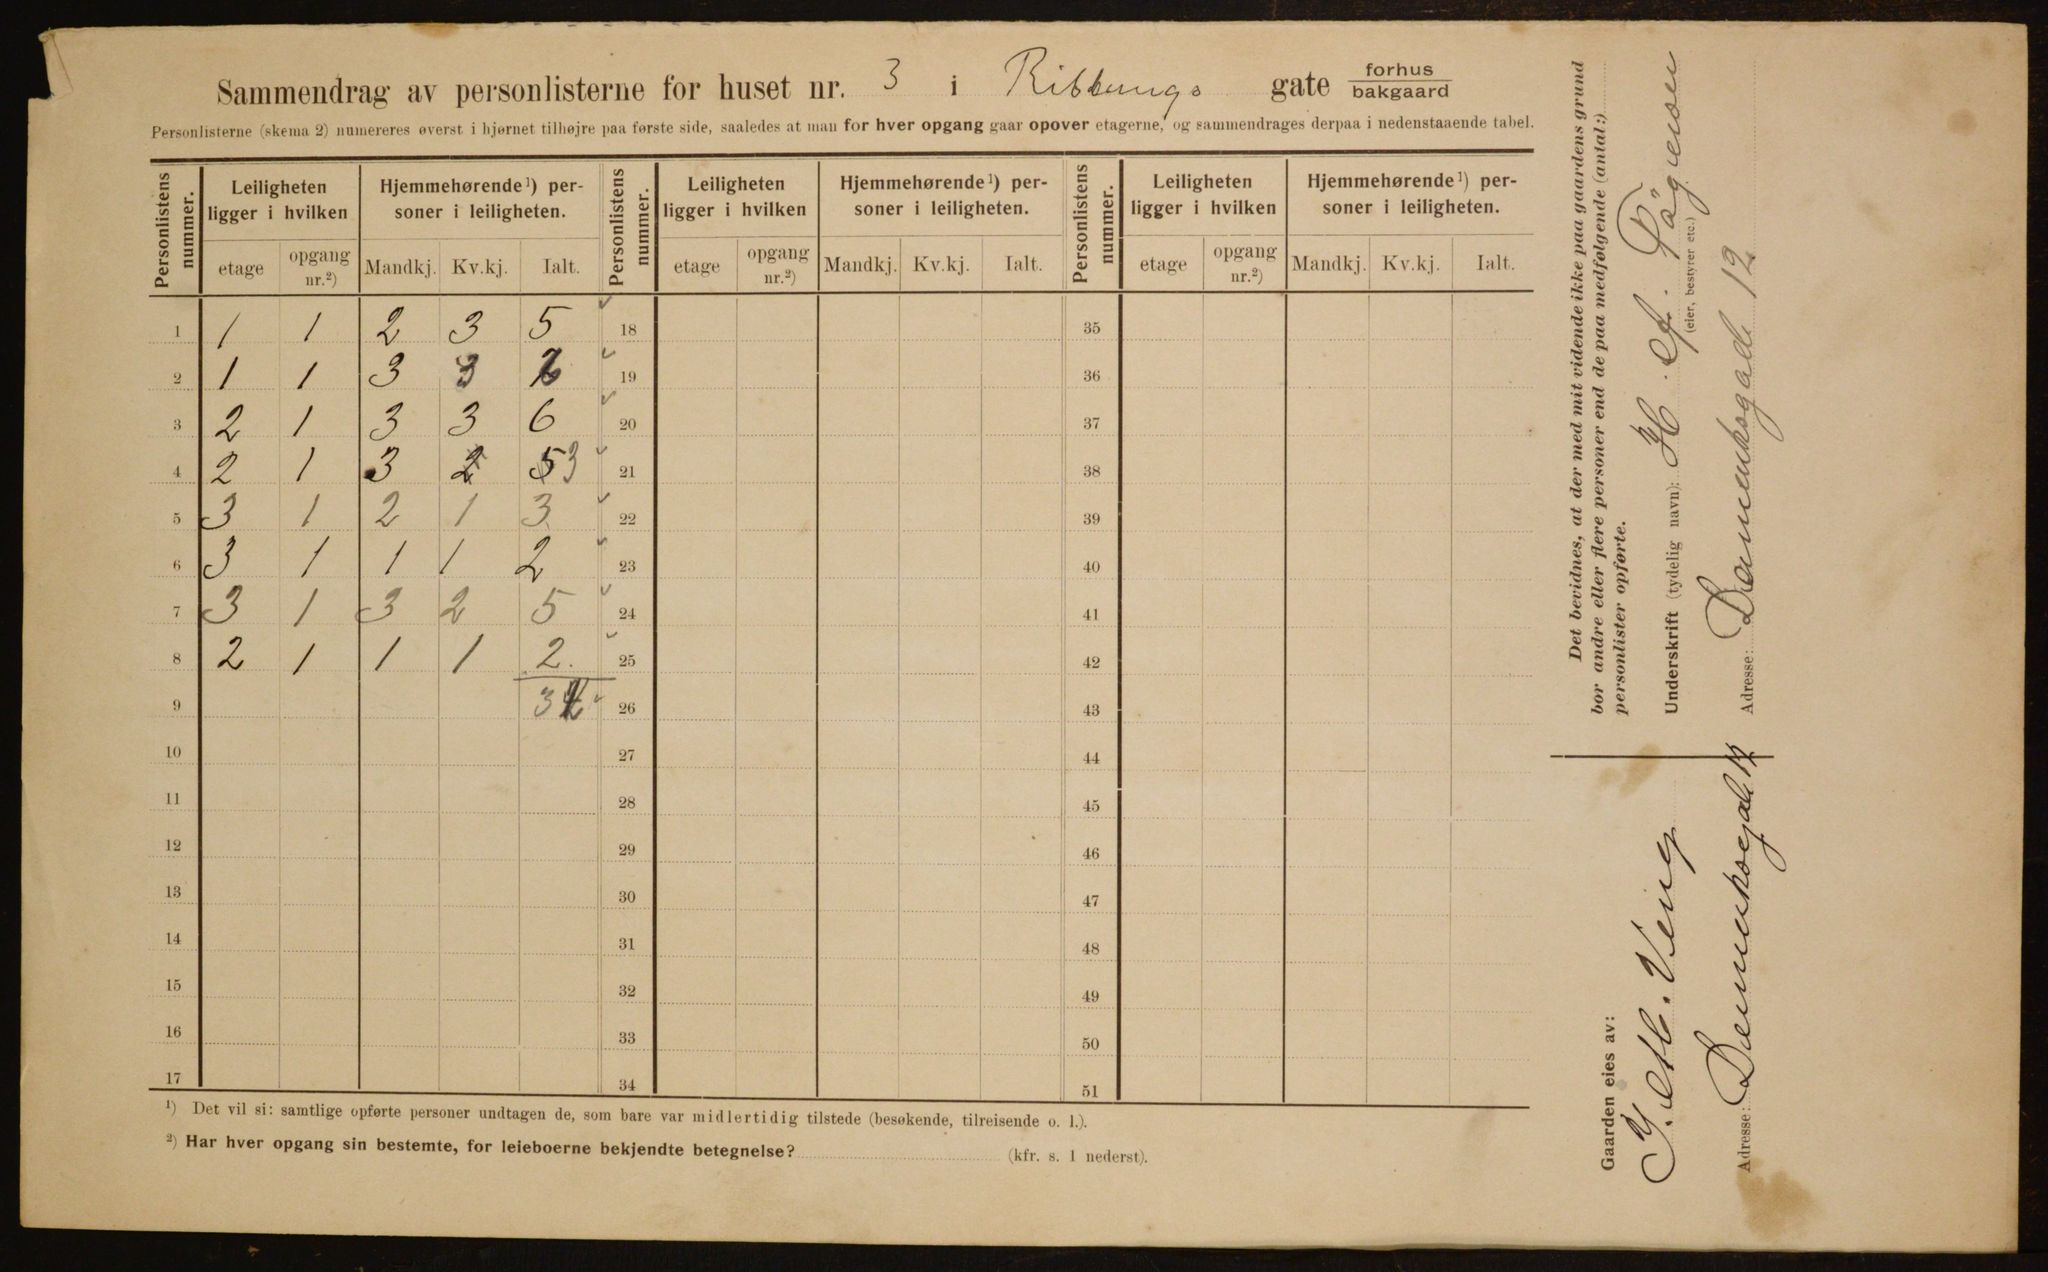 Sammendrag av personlisterne for huset nr. 3 i Ribbungs gate forhus bakgaard
Personlisterne (skema 2) numereres øverst i hjørnet tilhøjre paa første side, saaledes at man for hver opgang gaar opover etagerne, og sammendrages derpaa i nedenstaaende tabel.
Personlistens nummer. Leiligheten ligger i hvilken Hjemmehørende¹) personer i leiligheten. Personlistens nummer. Leiligheten ligger i hvilken Hjemmehørende¹) personer i leiligheten. Personlistens nummer. Leiligheten ligger i hvilken Hjemmehørende¹) personer i leiligheten.
etage opgang nr.²) Mandkj. Kv.kj. Ialt. etage opgang nr.²) Mandkj. Kv.kj. Ialt. etage opgang nr.²) Mandkj. Kv.kj. Ialt.
1 1 1 2 3 5 18 35
2 1 1 3 3 19 36
3 2 1 3 3 6 20 37
4 2 1 3 2 5 3 21 38
5 3 1 2 1 3 22 39
6 3 1 1 1 2 23 40
7 3 1 3 2 5 24 41
8 2 1 1 1 2. 25 42
9 26 43
10 27 44
11 28 45
12 29 46
13 30 47
14 31 48
15 32 49
16 33 50
17 34 51
¹) Det vil si: samtlige opførte personer undtagen de, som bare var midlertidig tilstede (besøkende, tilreisende o. l.).
²) Har hver opgang sin bestemte, for leieboerne bekjendte betegnelse? (kfr. s. 1 nederst).
Det bevidnes, at der med mit vidende ikke paa gaardens grund
bor andre eller flere personer end de paa medfølgende (antal:)
personlister opførte.
Underskrift (tydelig navn): H.
(eier, bestyrer etc.)
Adresse: Danmarksgade 12
Gaarden eies av:
Adresse: Danmarksgade 12